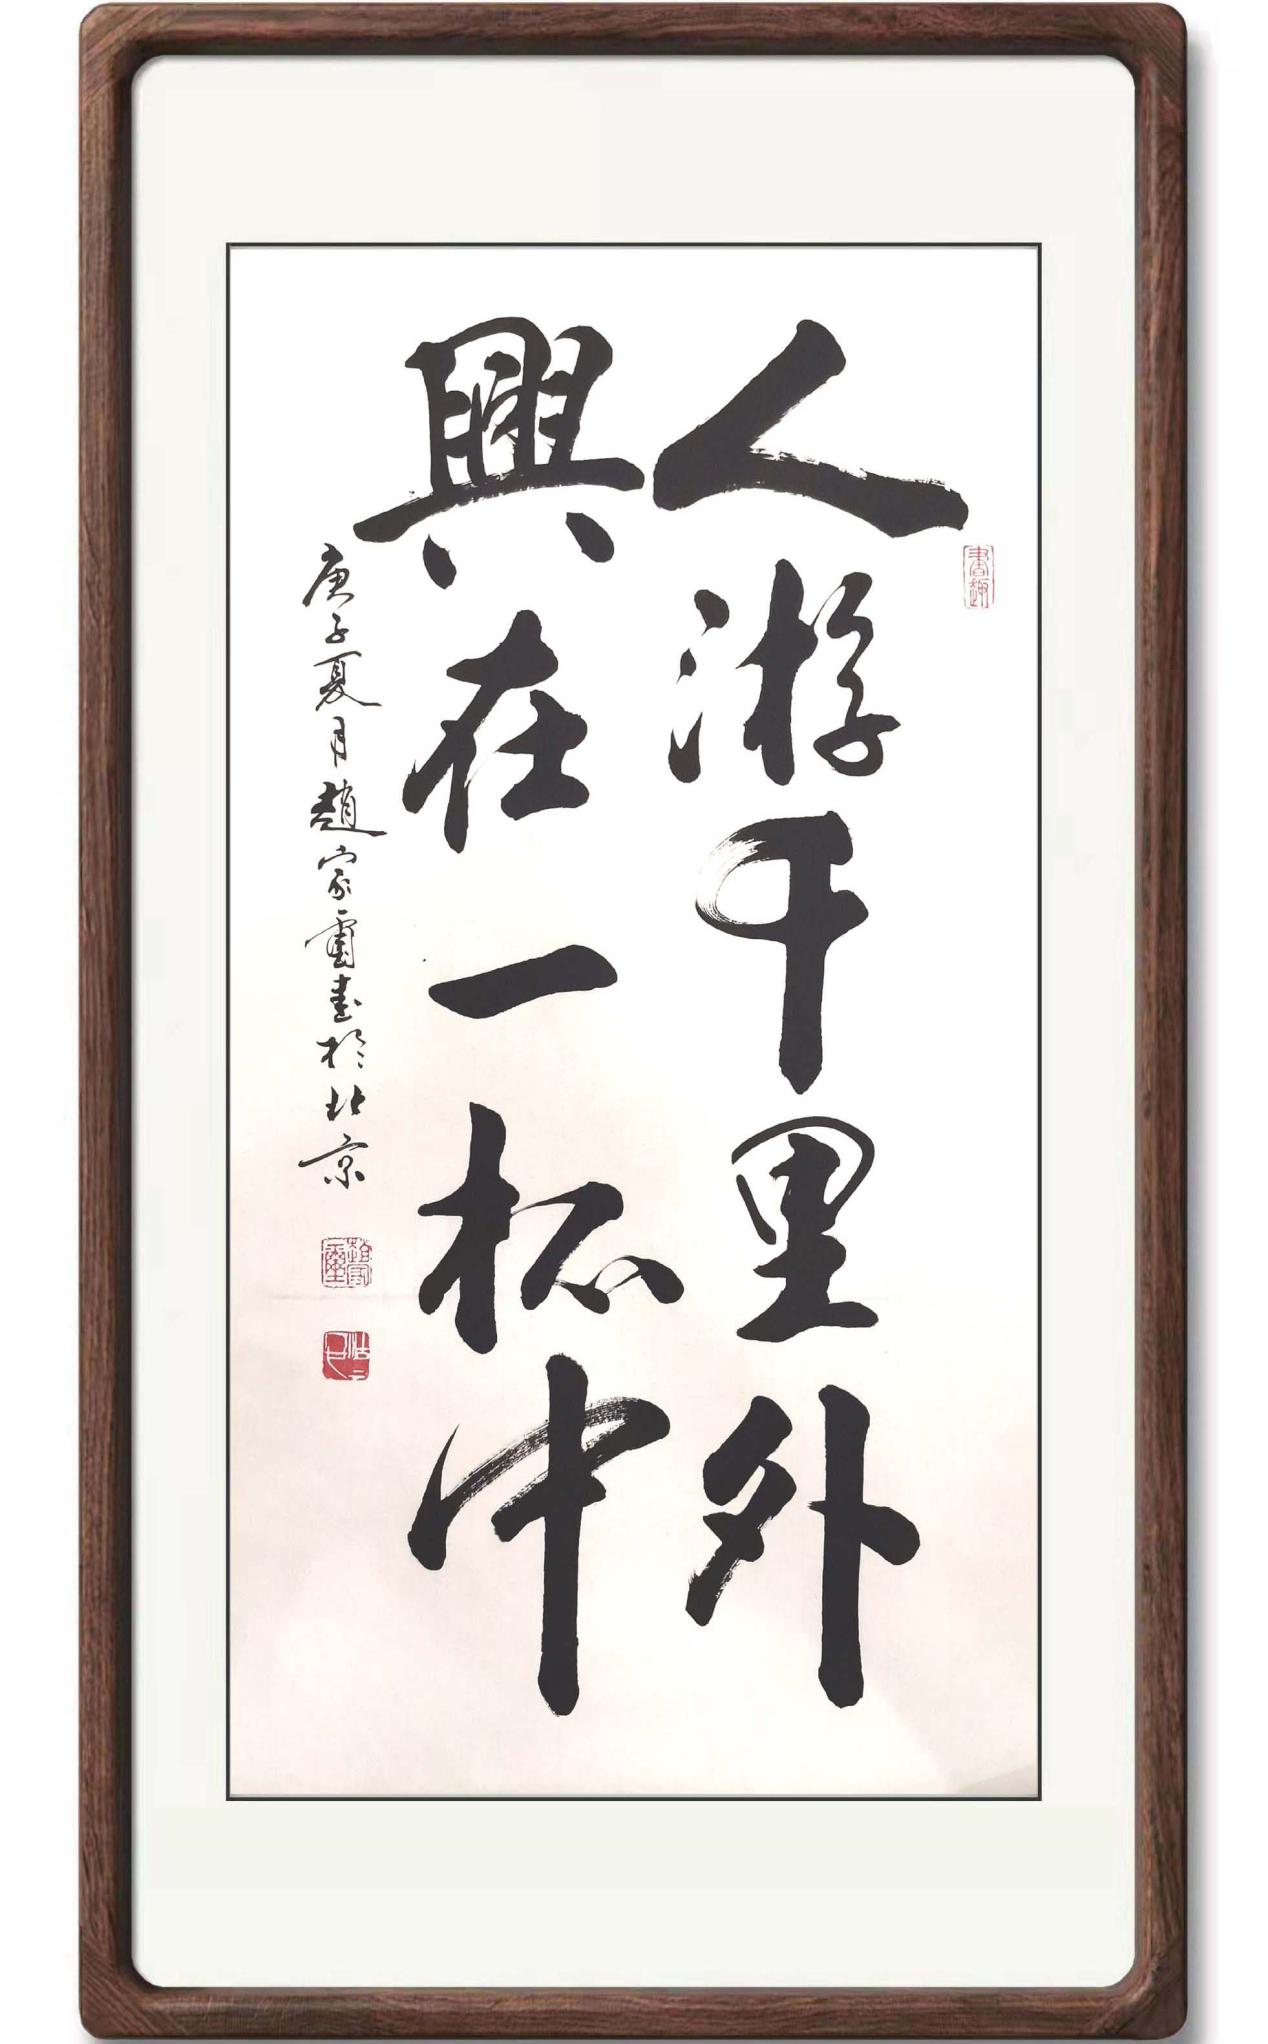 人游千里外
興在一杯中
庚子夏月趙家雲書於北京
書趣